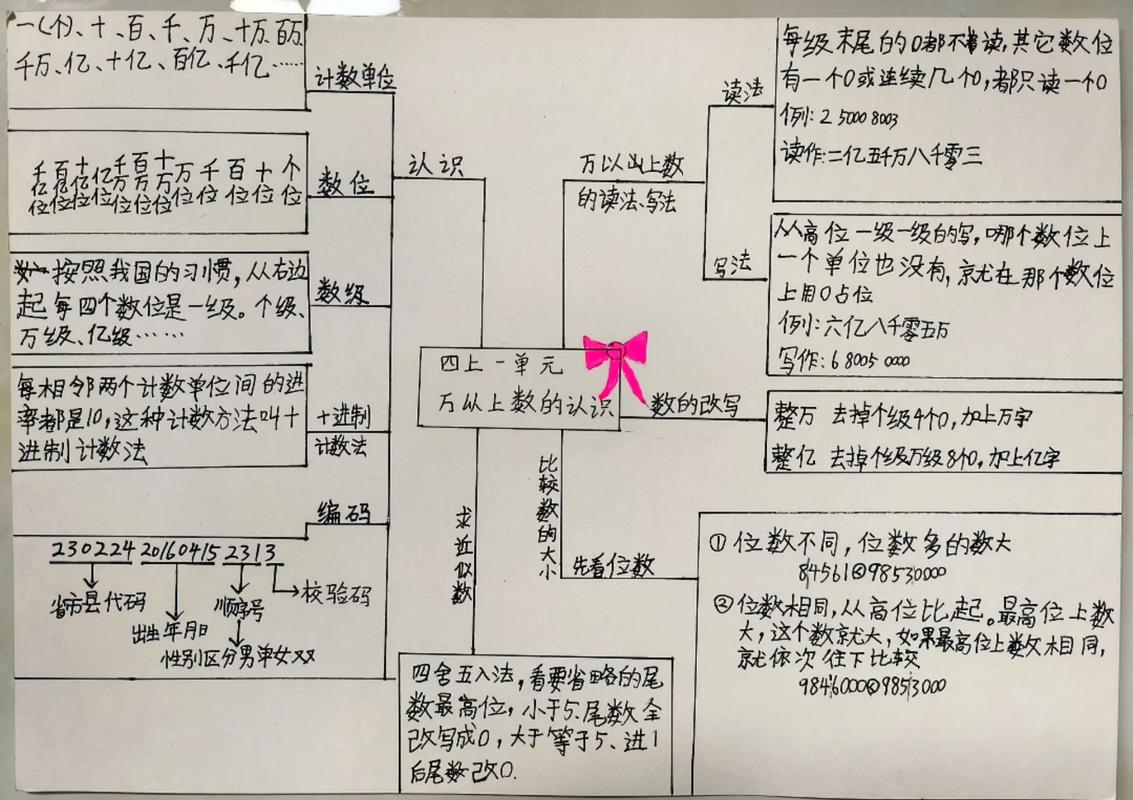 四上一单元
万以上数的认识
认识
计数单位
一(个)、十、百、千、万、十万、百万
千万、亿、十亿、百亿、千亿……
数位
千亿位 百亿位 十亿位 亿位 千万位 百万位 十万位 万位 千位 百位 十位 个位
数级
按照我国的习惯，从右边
起每四个数位是一级。个级、
万级、亿级……
十进制
计数法
每相邻两个计数单位间的进
率都是10，这种计数方法叫十
进制计数法
编码
230224 20160415 231 3
省市县代码
出生年月日
顺序号
校验码
性别区分男单女双
万以上数
的读法、写法
读法
每级末尾的0都不读，其它数位
有一个0或连续几个0，都只读一个0
例: 2 5000 8003
读作:二亿五千万八千零三
写法
从高位一级一级的写，哪个数位上
一个单位也没有，就在那个数位
上用0占位
例:六亿八千零五万
写作: 6 8005 0000
数的改写
整万 去掉个级4个0，加上万字
整亿 去掉个级万级8个0，加上亿字
比较数的大小
先看位数
①位数不同，位数多的数大
84561<98530000
②位数相同，从高位比起。最高位上数
大，这个数就大，如果最高位上数相同，
就依次往下比较
9846000<9853000
求近似数
四舍五入法，看要省略的尾
数最高位，小于5、尾数全
改写成0，大于等于5、进1
后尾数改0.